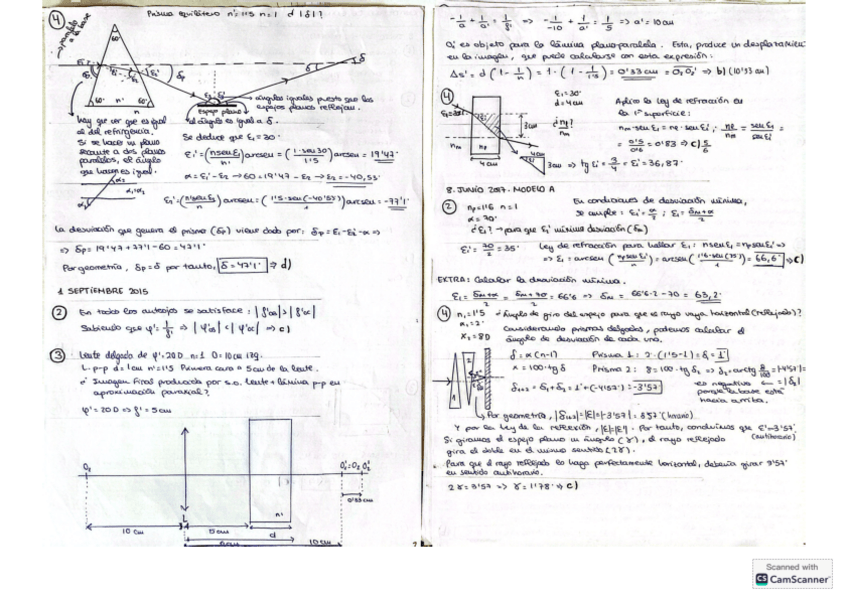 ④ Prisma equilátero n'=1'5 n=1 d |δ|?
paralelo a la base
60°
60° n' 60°
n
espejo plano
ángulos iguales puesto que los espejos planos reflejan.
el ángulo es igual a δ.
Hay que ver que es igual al del refringencia.
Si se hace un plano secante a dos planos paralelos, el ángulo que hacen es igual.
Se deduce que ε₁=30°
ε₁'=(n senε₁/n')arcsen=(1·sen30/1'5)arcsen=19'47°
α=ε₁'-ε₂→60=19'47-ε₂→ε₂=-40,53°
ε₂'=(n'senε₂/n)arcsen=(1'5·sen(-40'53)/1)arcsen=-77'1°
La desviación que genera el prisma (δp) viene dado por: δp=ε₁-ε₂'-α⇒
⇒ δp=19'47+77'1-60=47'1°
Por geometría, δp=δ por tanto, δ=47'1° ⇒ d)
1 SEPTIEMBRE 2015
② En todo los anteojos se satisface: |f'ob|>|f'oc|
Sabiendo que φ'=1/f' ⇒ |φ'ob|<|φ'oc| ⇒ c)
③ Lente delgado de φ'=20D n=1 O=10cm izq.
L.p-p d=1cm n'=1'5 Primera cara a 5cm de la lente.
o' Imagen final producida por s.o. lente+lámina p-p en aproximación paraxial?
φ'=20D⇒f'=5cm
O₁
O₁'=O₂ O₂'
0'33cm
L
n'
10cm
5cm
d
10cm
-1/a+1/a'=1/f' ⇒ -1/-10+1/a'=1/5 ⇒ a'=10cm
O₁' es objeto para la lámina planoparalela. Esta, produce un desplazamiento en la imagen, que puede calcularse con esta expresión:
Δs'=d(1-1/n)=1·(1-1/1'5)=0'33cm=O₂O₂' ⇒ b)(10'33cm)
④ ε₁=30°
d=4cm
¿np?
nm
np
nm
3cm
4cm
4cm
3cm
Aplico la ley de refracción en la 1ª superficie:
nm senε₁=np·senε₁'; nm/np=senε₁'/senε₁
=0'5/0'6=0'83⇒c) 5/6
⇒ tgε₁'=3/4=ε₁'=36,87°
8. JUNIO 2017. MODELO A
② np=1'6 n=1
α=70°
¿ε₁?→para que ε₁' mínima desviación (δm)
En condiciones de desviación mínima, se cumple: ε₁'=α/2; ε₁=(δm+α)/2
ε₁'=70/2=35° Ley de refracción para hallar ε₁: n senε₁=np senε₁'⇒
⇒ε₁=arcsen(np senε₁'/n)=arcsen(1'6·sen(35°)/1)=66,6°⇒c)
EXTRA: Calcular la desviación mínima.
ε₁=(δm+α)/2=(δm+70)/2=66'6⇒δm=66'6·2-70=63,2°
④ n₁=1'5
n₂=2°
X₂=8D
Ángulo de giro del espejo para que el rayo vaya horizontal (reflejado)?
Considerando prismas delgados, podemos calcular el ángulo de desviación de cada uno.
δ=α(n-1)
X=100·tgδ
Prisma 1: 2·(1'5-1)=δ=1°
Prisma 2: 8=100·tgδ₂→δ₂=arctg 8/100=|-4'57°|
δ₁₊₂=δ₁+δ₂=1°+(-4'57)=-3'57°
es negativo porque la base está hacia arriba.
Por geometría, |δ₁₊₂|=|ε|=|-3'57|=3'57° (horario)
Y por la ley de la reflexión, |ε|=|ε'|. Por tanto, concluimos que ε'=-3'57° (antihorario)
Si giramos el espejo plano un ángulo (γ), el rayo reflejado gira el doble en el mismo sentido (2γ).
Para que el rayo reflejado lo haga perfectamente horizontal, debería girar 3'57° en sentido antihorario.
2γ=3'57⇒γ=1'78°⇒c)
Scanned with
CS CamScanner